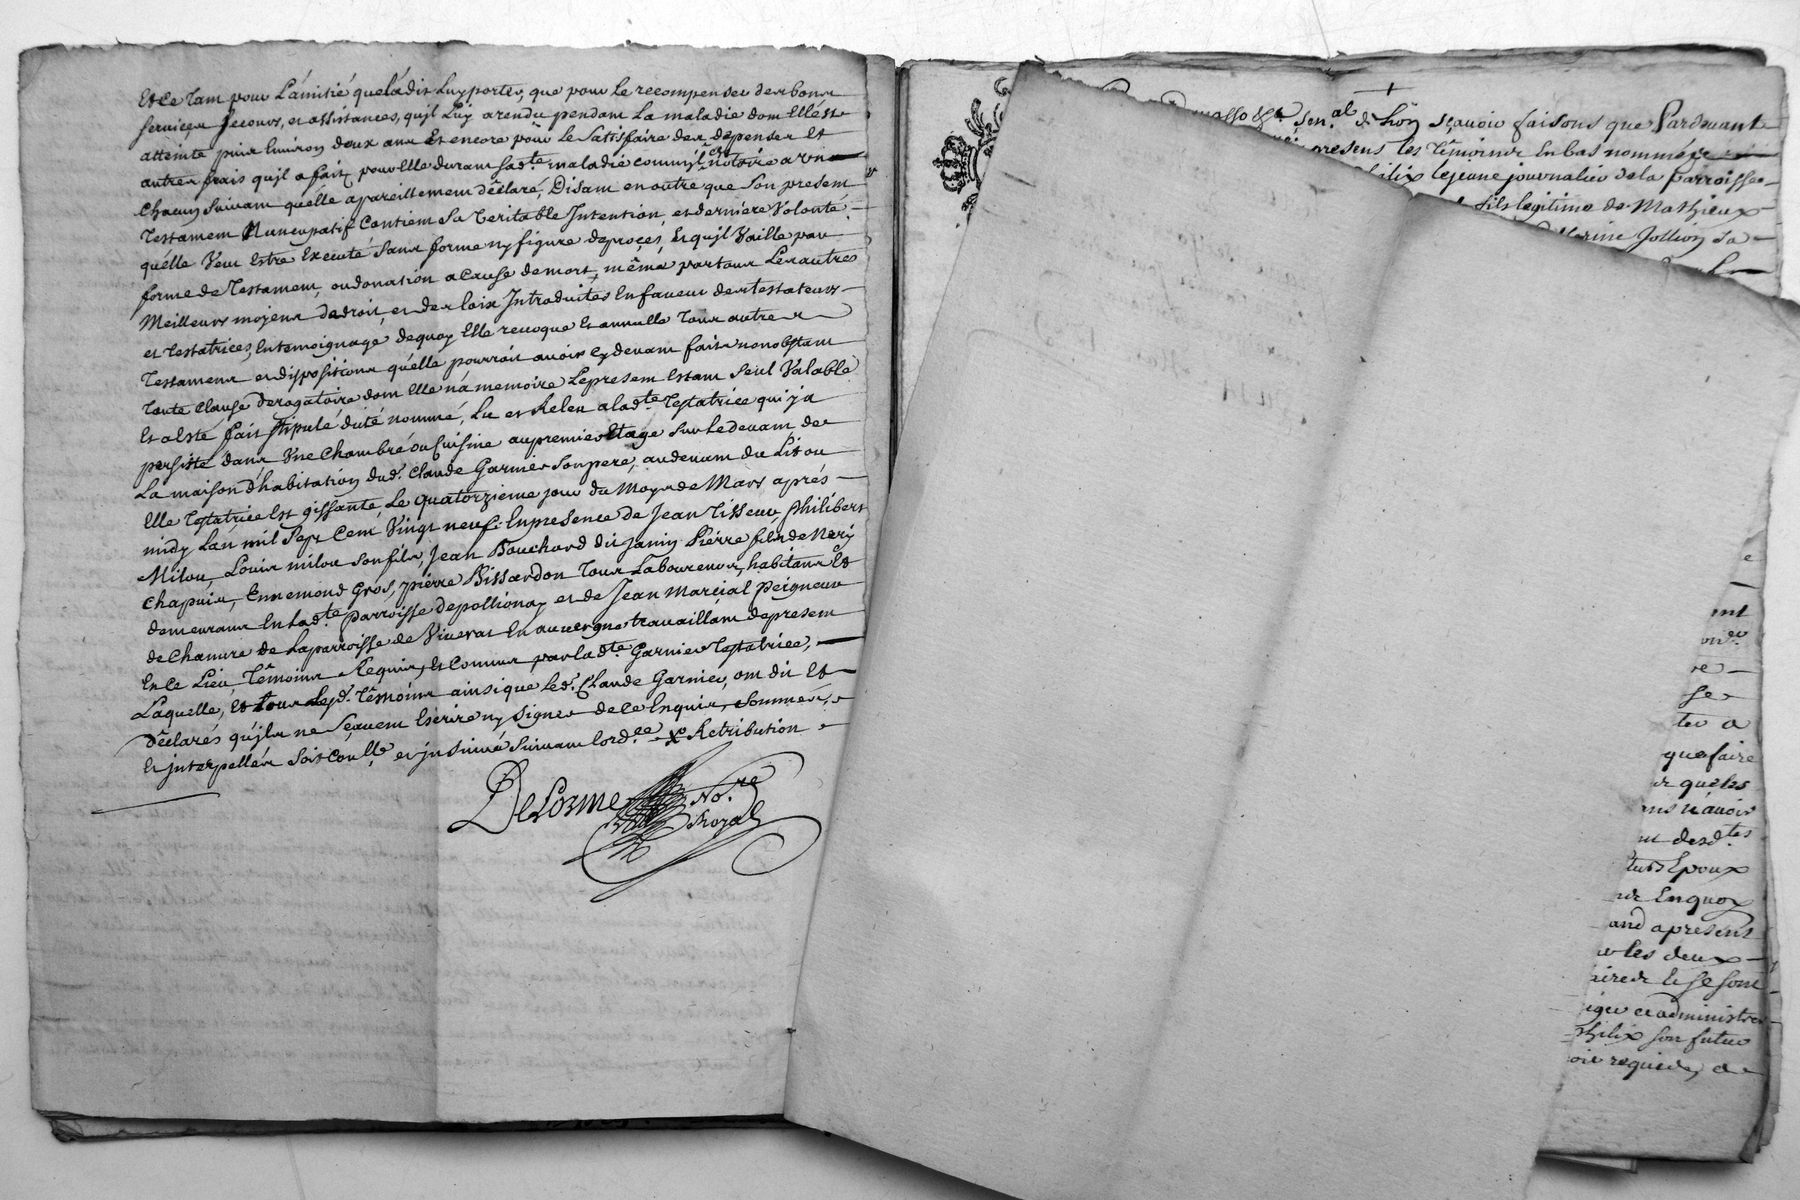 Et ce tam pour L'amitié quéladit Luy porter, que pour le recompenser des bons
services secours, et assistances, quil Luy a rendu pendam La maladie dom Elle est
atteinte puis Environ deux ans Et encore pour le Satisfaire des depenses Et
autres frais quil a fait pour Elle duram sad.te maladie comm'il est notoire a un
Chacun suivam quélle a pareillemem déclaré, Disam en outre que son presem
Testamem Nuncupatif Contiem Sa Veritable Intention, et dernière Volonté
quélle Veut Estre Executé sans forme ny figure de proçes, Et quil Vaille par
forme de Testamem, ou donation a Cause de mort, même par tous Les autres
Meilleurs moyens de droit, et des loix Introduites En faveur des testateurs
et Testatrices, En temoignage de quoy Elle revoque Et annulle tous autres
Testamens et dispositions quélle pourroit avoir cy devam faits nonobstam
toute Clause derogatoire dom Elle n'a memoire Le presem Estam Seul Valable
Et a Esté fait stipulé dicté nommé, Lu et Releu a lad.te Testatrice qui y a
persisté dans Vne Chambre ou Cuisine au premier Etage sur le devam de
La maison d'habitation dud. Claude Garnier son pere, au devam du Lit ou
Elle Testatrice Est gissante, Le quatorzieme jour du Moys de Mars aprés
midy Lan mil Sept Cent Vingt neuf. En presence de Jean Tisseur, Philibert
Milou, Louis milou son fils, Jean Bouchard dit Janin Pierre fils de Nery
Chapuis, Ennemond Gros, pierre Bissardon tous Laboureurs, habitans Et
demeurans En lad.te parroisse de pollionay et de Jean Marcial Peigneur
de Chanvre de La parroisse de Viverat En auvergne travaillam de presem
En Ce Lieu, Témoins Requis, Et Connus par lad.te Garnier Testatrice,
Laquelle, Et tous Lesd. Témoins ainsi que led. Claude Garnier, ont dit Et
déclarés quils ne Scavem Escrire ny signer de ce Enquis, sommés,
Et interpellés soit Con.lle et jnsinué suivam lord.ce Retribution
DeLorme No.re
Royal
Sen.al de Lion sçavoir faisons que Pardevant
presens les témoins En bas nommés
filix Lejeune journalier de la Parroisse
fils legitime de Mathieux
Jollion Sa
que faire
n'avoir
desd.tes
Epoux
Enquoy
apresent
les deux
le se sont
administrer
philix son futur
requis, de